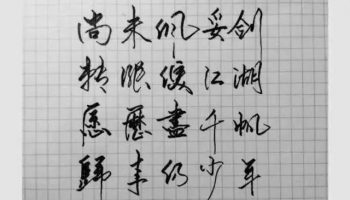 尚未佩妥剑
轉眼便江湖
愿歷盡千帆
歸来仍少年